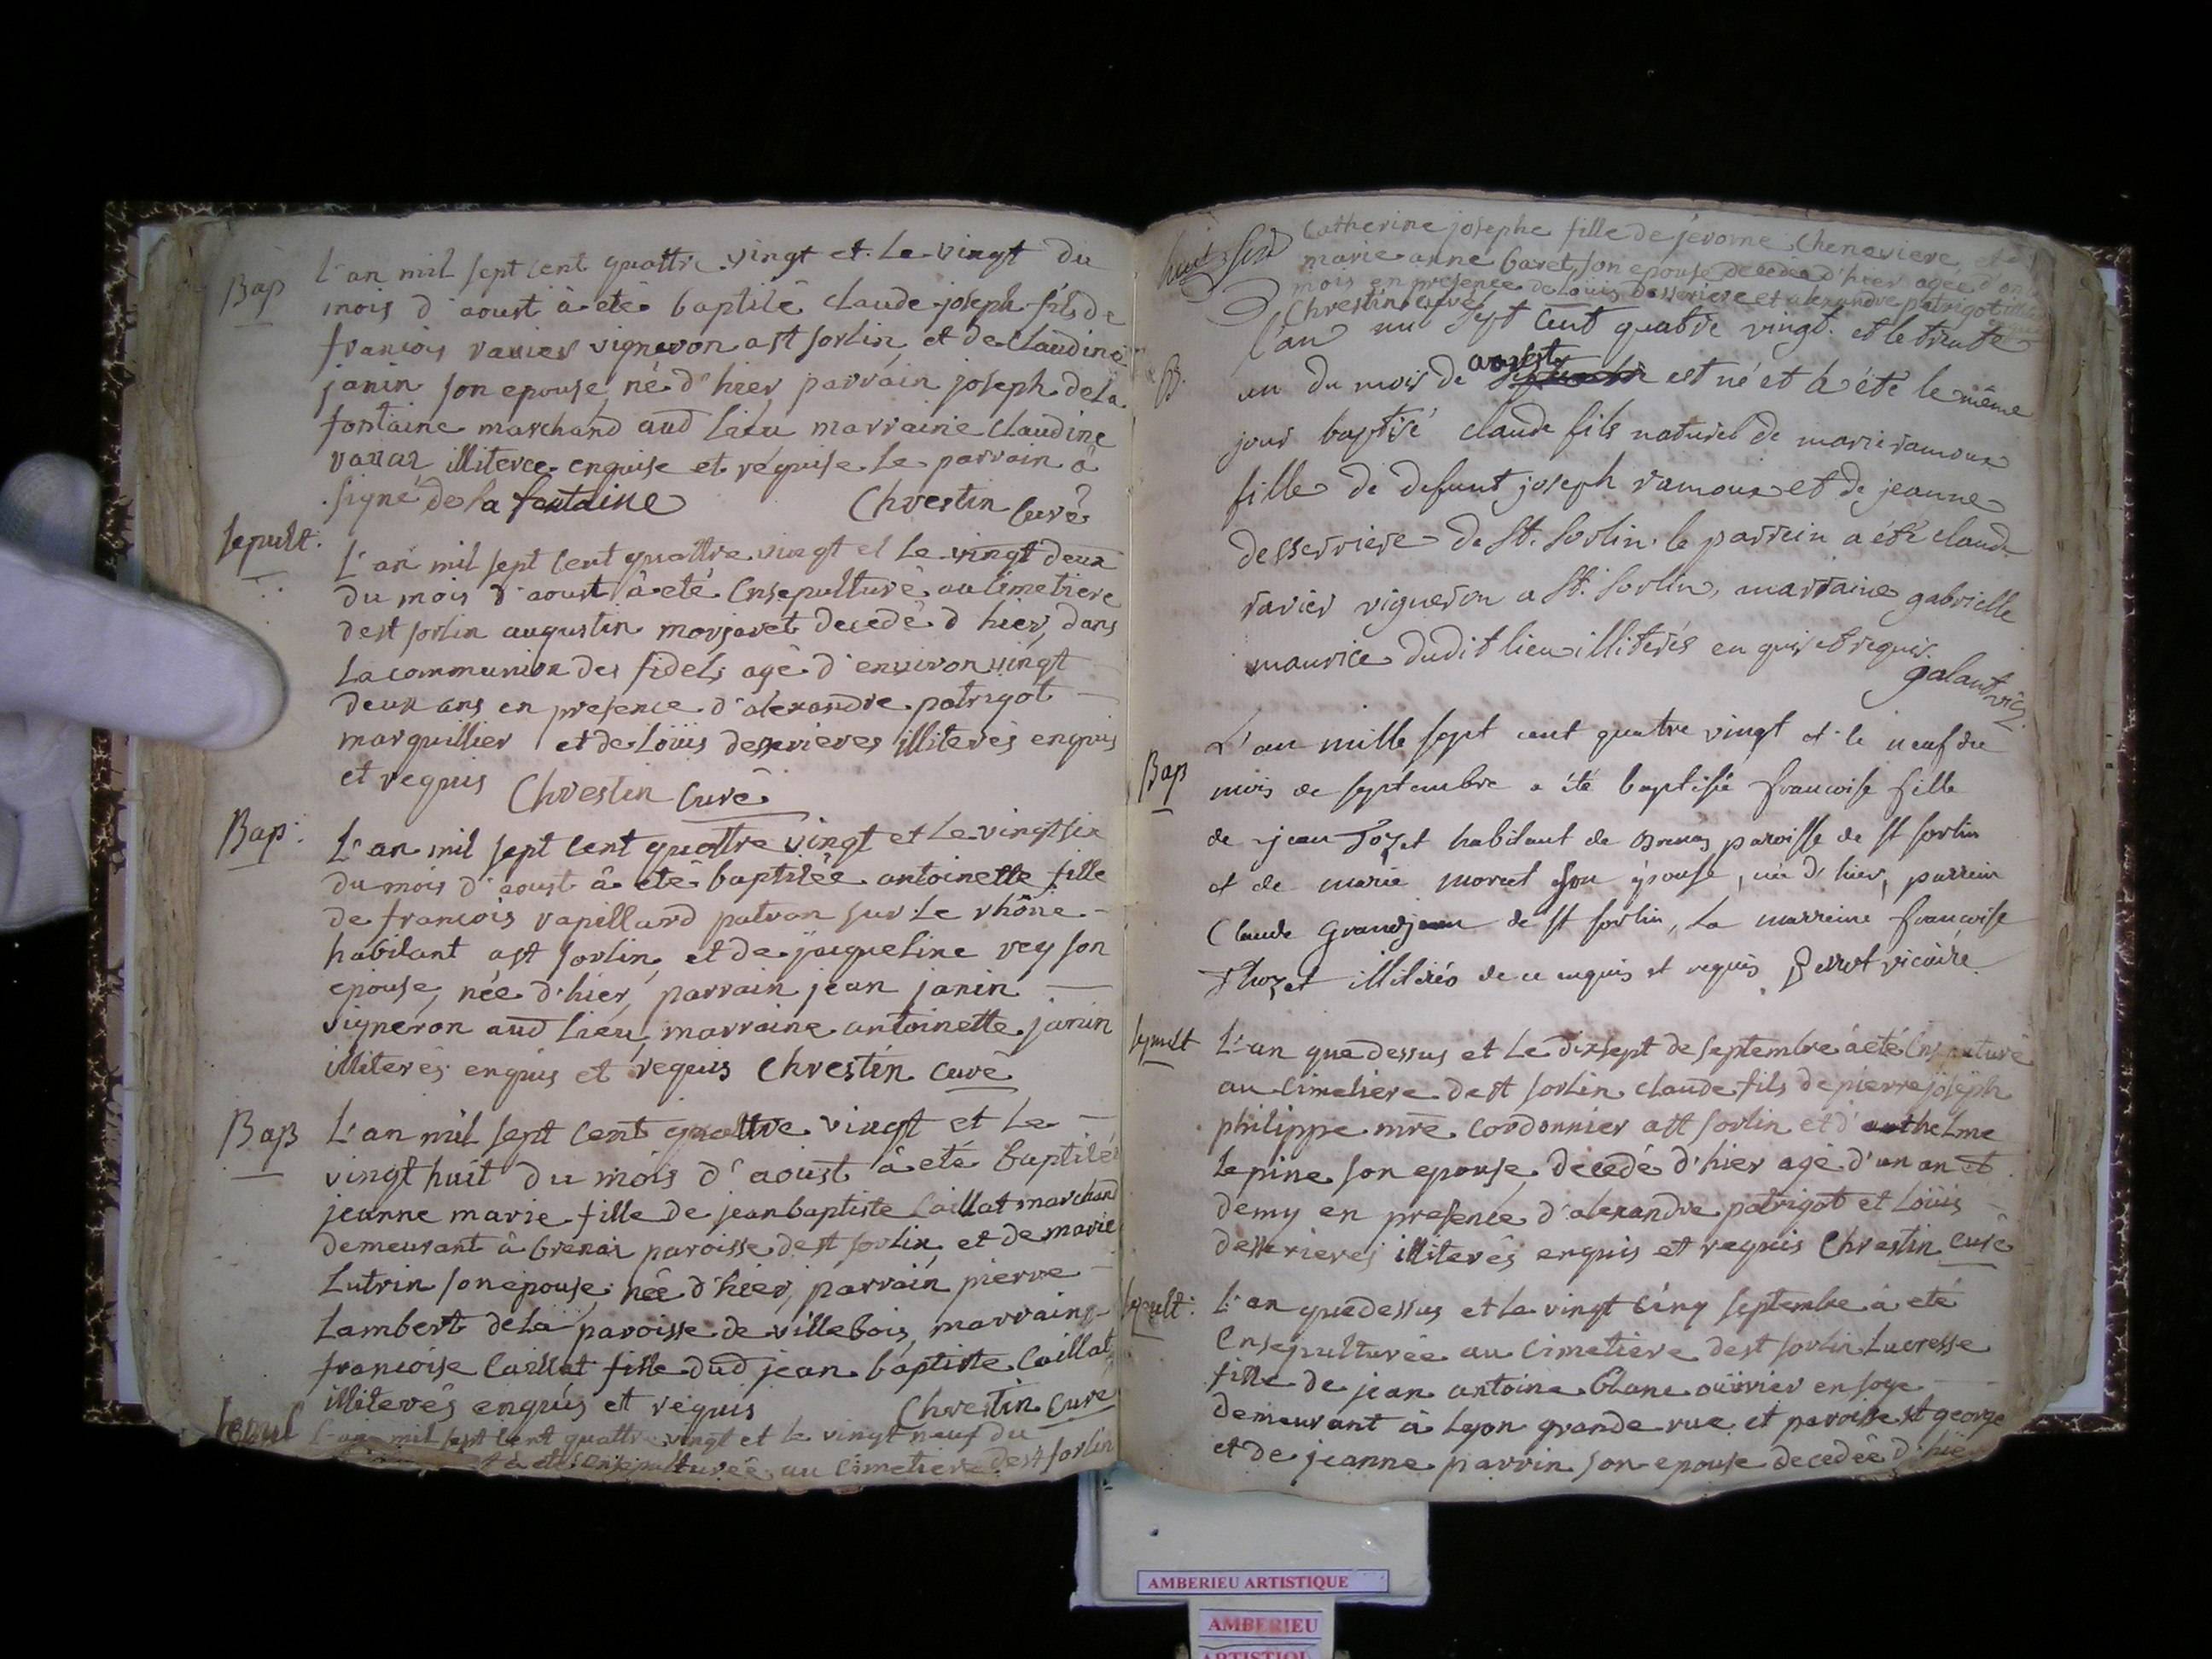 Bap
L'an mil sept cent quattre vingt et le vingt du
mois d'aoust à eté baptisé claude joseph fils de
francois ravier vigneron a st sorlin et de claudine
janin son epouse né d'hier parrain joseph dela
fontaine marchand aud lieu marraine claudine
illiterée enquise et requise le parrain à
signé dela fontaine Chrestin Curé
sepult:
L'an mil sept cent quattre vingt et le vingt deux
du mois d'aoust à eté Ensepulturé au cimetiere
de st sorlin augustin morgaret decedé d'hier, dans
la communion des fidels agé d'environ vingt
deux ans en presence d'alexandre patrigot
marguillier et de Loüis desserieres illiterés enquis
et requis Chrestin Curé
Bap:
L'an mil sept cent quattre vingt et le vingt six
du mois d'aoust à eté baptisée antoinette fille
de francois vapillard patron sur le rhône
habitant a st sorlin et de jacqueline rey son
epouse, née d'hier, parrain jean janin
vigneron aud lieu, marraine antoinette janin
illiterés enquis et requis Chrestin curé
Bap
L'an mil sept cent quattre vingt et le
vingt huit du mois d'aoust à eté baptisée
jeanne marie fille de jean baptiste Caillat marchand
demeurant à brenaz paroisse de st sorlin et de marie
Lutrin son epouse, née d'hier, parrain pierre
Lambert dela paroisse de villebois, marraine
francoise Caillat fille dud jean baptiste Caillat
illiterés enquis et requis Chrestin Curé
sepul
L'an mil sept cent quattre vingt et le vingt neuf du
à eté Ensepulturée au cimetiere de st sorlin
Catherine josephe fille de jérome Cheneviere et de
marie anne baret son epouse decedée d'hier agée d'
mois en presence de Louis desseriere et alexandre patrigot
Chrestin curé
l'an mil sept cent quatre vingt et le trente
B.
un du mois de aoust est né et à été le même
jour baptisé claude fils naturel de marie ramoux
fille de defunt joseph ramoux et de jeanne
desserriere de St. Sorlin. le parrein a été claude
ravier vigneron a St. Sorlin, marraine gabrielle
maurice dudit lieu illiterés enquis et requis.
galant vic.
Bap
L'an mille sept cent quatre vingt et le neuf du
mois de septembre a été baptisée francoise fille
de jean Tozet habitant de Brenaz paroisse de st sorlin
et de marie moret son épouse, née d'hier, parrein
Claude Grandjean de st sorlin, la marreine francoise
Thozet illiterés de ce enquis et requis Perret vicaire
sepult
L'an que dessus et le dix sept de septembre à eté Ensepulturé
au cimetiere de st sorlin claude fils de pierre joseph
philippe mre cordonnier a st sorlin et d'anthelme
Lepine son epouse, decedé d'hier agé d'un an et
demy en presence d'alexandre patrigot et Loüis
desserieres illiterés enquis et requis Chrestin curé
sepult:
L'an que dessus et le vingt cinq septembre à eté
Ensepulturée au cimetiere de st sorlin Lucresse
fille de jean antoine blanc oüvrier en soye
demeurant à Lyon grande rue et paroisse st george
et de jeanne parrin son epouse decedée d'hier
AMBERIEU ARTISTIQUE
AMBERIEU